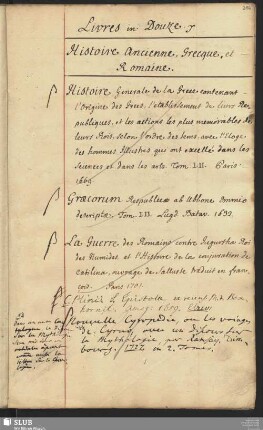 Livres in Douze.
Histoire Ancienne, Grecque, et
Romaine.
Histoire Generale de la Grece contenant
l'Origine des Grecs, l'etablissement de leurs Re-
publiques, et les actions les plus memorables de
leurs Rois, selon l'ordre des tems, avec l'Eloge
des hommes Illustres qui ont excellé dans les
Sciences et dans les arts. Tom. I-II. Paris.
1669.
Græcorum Respublicæ ab Ubbone Emmio
descriptæ. Tom. I-II. Lugd. Batav. 1632.
La Guerre des Romains contre Jugurtha Roi
des Numides, et l'Histoire de la conjuration de
Catilina, ouvrage de Salluste traduit en fran-
çois. Paris 1701.
Plinii Epistolæ
1659.
Nouvelle Cyropedie, ou les voiage
de Cyrus, avec un Discours sur
la Mythologie par Ramsay,
bourg. 1732. in 2. Tomes.
SLUB